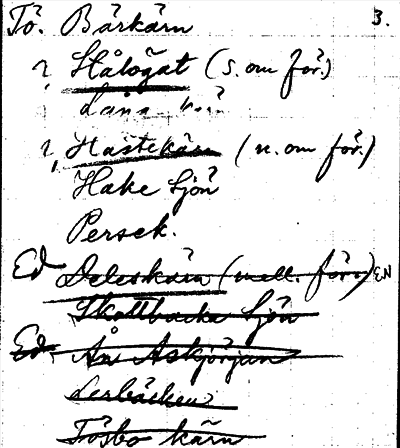 Tö. Bärkärn 3.
2, Hålögat (s. om för.)
2, Hästekärn (n. om för.)
Hake Sjön
Persek.
Ed Deleskärn (mell. för.) EN
Skottbacka Sjön
Ed. Ån Askjörjan
Lerbäcken
Tösbo kärn